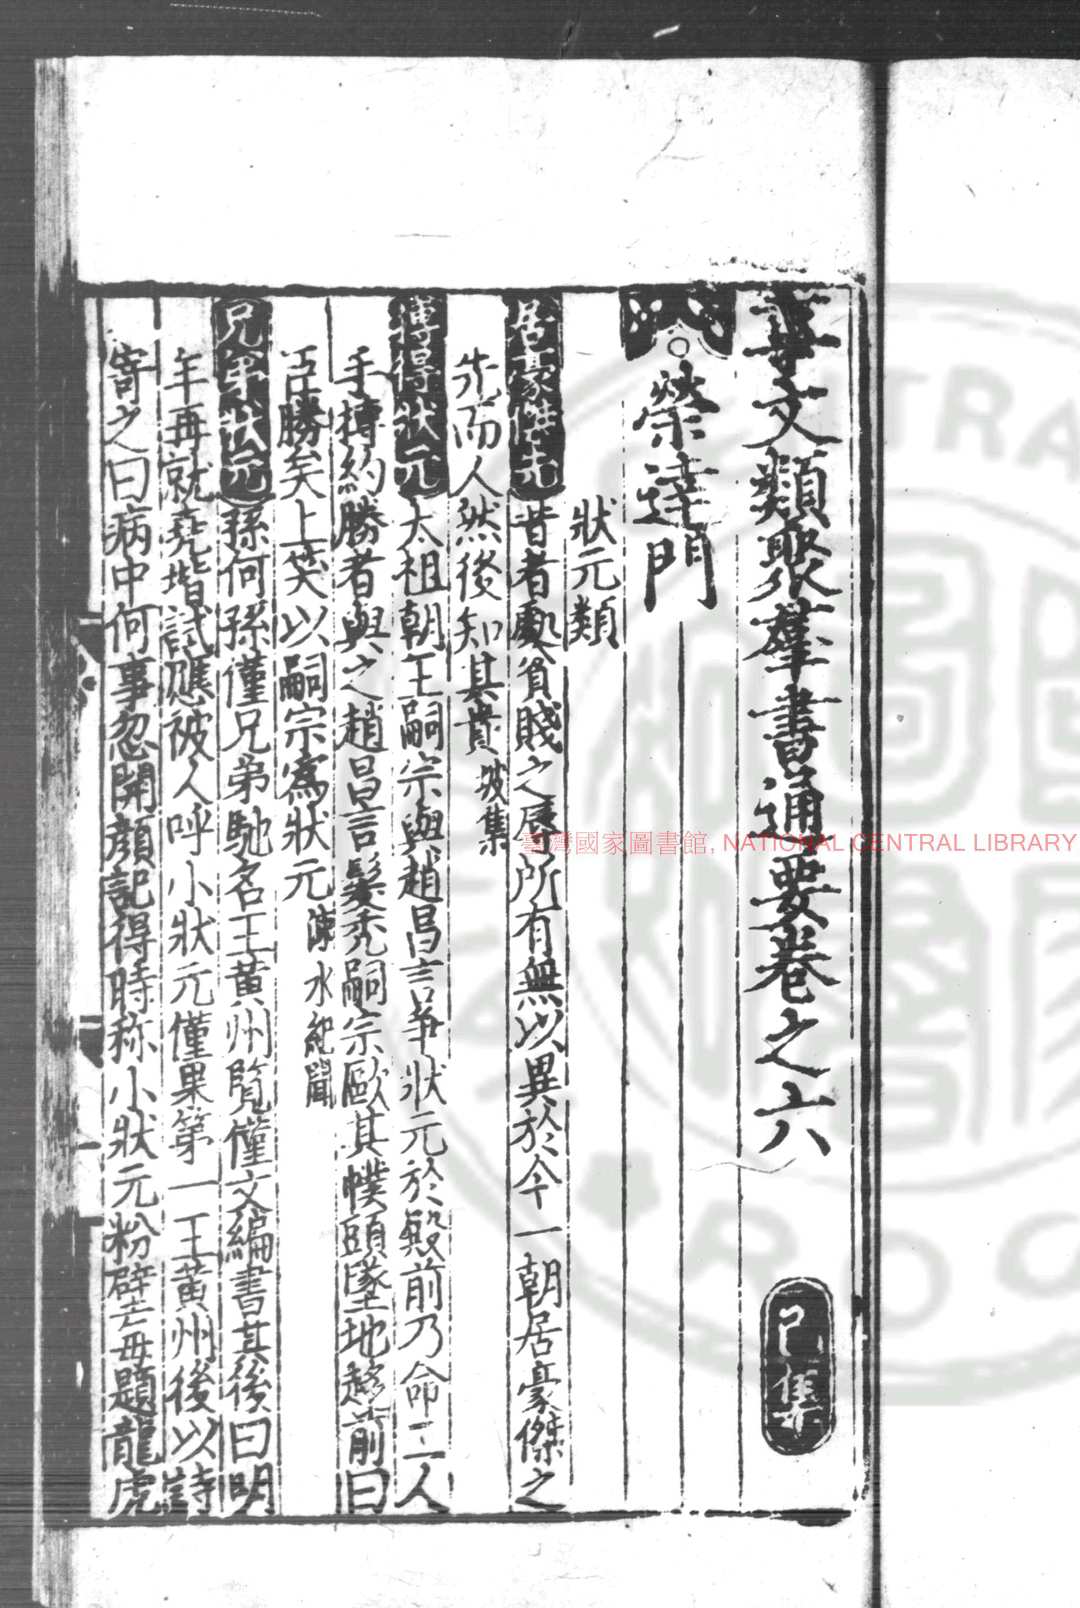 事文類聚羣書通要卷之六 己集
榮達門
狀元類
居豪傑先 昔者處貧賤之辱所有無以異於今一朝居豪傑之
先而人然後知其貴 坡集
搏得狀元 太祖朝王嗣宗與趙昌言爭狀元於殿前乃命二人
手搏約勝者與之趙昌言髮禿嗣宗歐其幞頭墜地趍前曰
臣勝矣上笑以嗣宗爲狀元 涑水紀聞
兄弟狀元 孫何孫僅兄弟馳名王黃州覧僅文編書其後曰明
年再就堯堦試應被人呼小狀元僅果第一王黃州後以詩
寄之曰病中何事忽開顔記得時称小狀元粉壁毋題龍虎
臺灣國家圖書館, NATIONAL CENTRAL LIBRARY